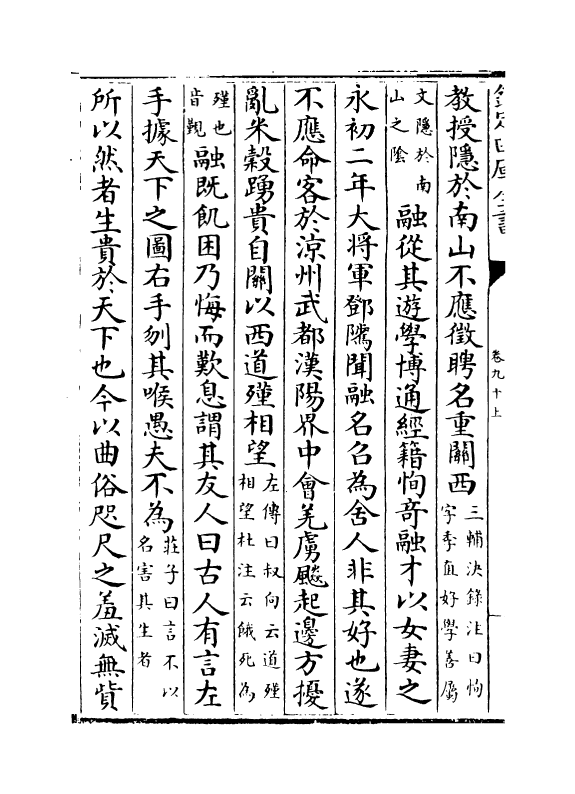 欽定四庫全書
卷九十上
教授隱於南山不應徵聘名重關西三輔決錄注曰恂字季直好學善屬
文隱於南山之陰融從其遊學博通經籍恂奇融才以女妻之
永初二年大將軍鄧隲聞融名召為舍人非其好也遂
不應命客於涼州武都漢陽界中會羌虜飈起邊方擾
亂米穀踴貴自關以西道殣相望左傳曰叔向云道殣相望杜注云餓死為
殣也音覲融既飢困乃悔而歎息謂其友人曰古人有言左
手據天下之圖右手刎其喉愚夫不為莊子曰言不以名害其生者
所以然者生貴於天下也今以曲俗咫尺之羞滅無貲